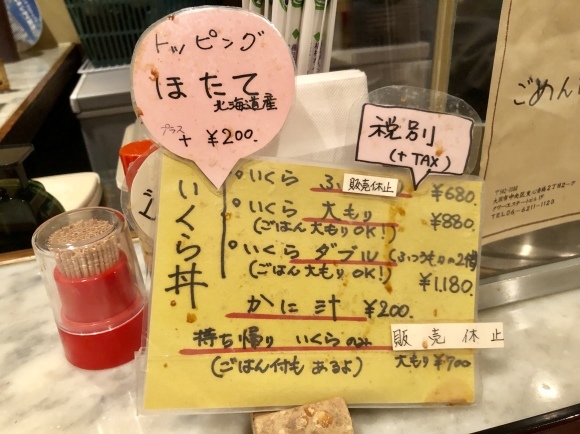 トッピング
ほたて
北海道産
プラス
+ ¥200.
税別
(+TAX)
いくら丼
いくら ふ 販売休止 ¥680.
いくら 大もり ¥880
(ごはん大もりOK!)
いくら ダブル (ふつうもりの2倍)
(ごはん大もりOK!) ¥1,180.
かに汁 ¥200.
持ち帰り いくらのみ 販売休止
(ごはん付もあるよ) 大もり ¥700
ごめん